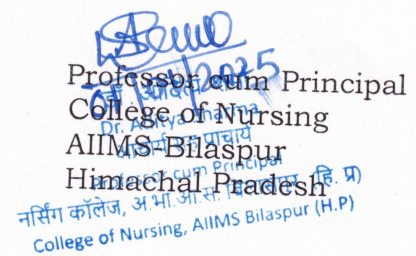 Professor cum Principal
College of Nursing
AIIMS-Bilaspur
Himachal Pradesh
Dr. Aditya Sharma
Professor cum Principal
नर्सिंग कॉलेज, अ.भा.आ.सं. बिलासपुर (हि. प्र)
College of Nursing, AIIMS Bilaspur (H.P)